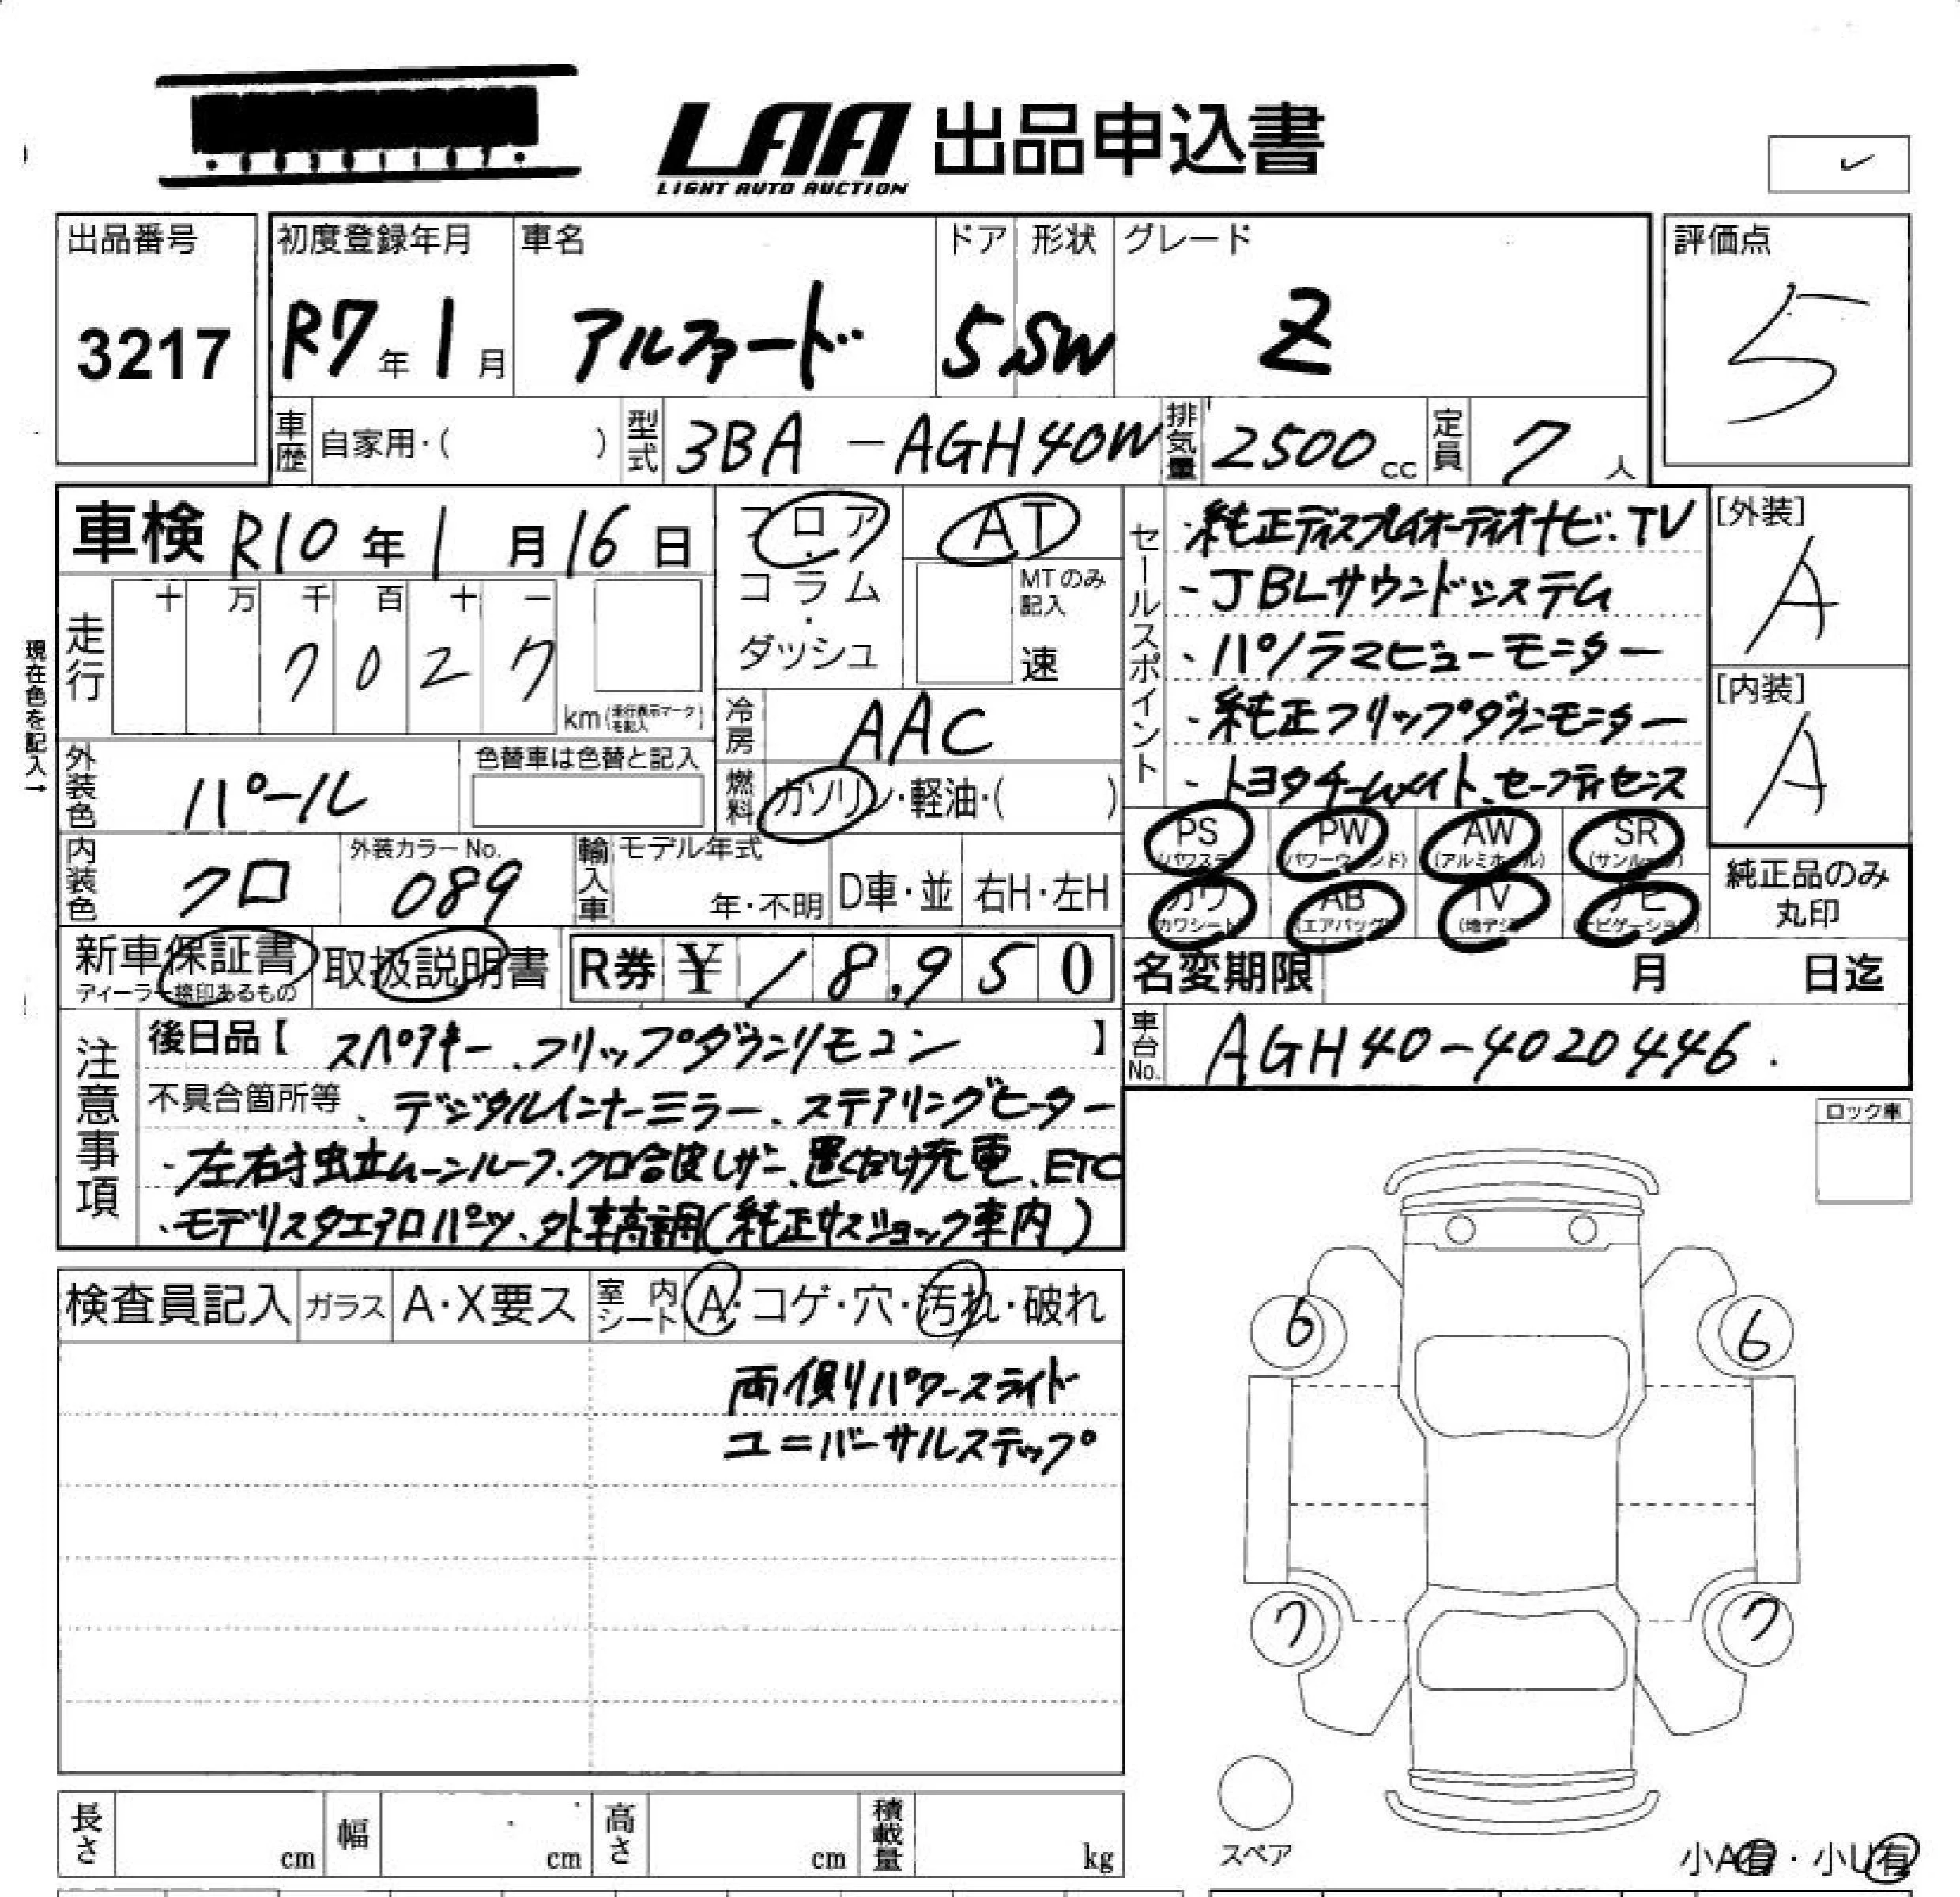 LAA 出品申込書
LIGHT AUTO AUCTION
出品番号 初度登録年月 車名 ドア 形状 グレード 評価点
3217 R7年1月 アルファード 5 SW Z 5
車歴 自家用・( ) 型式 3BA-AGH40W 排気量 2500cc 定員 7人
車検 R10年1月16日
フロア・コラム・ダッシュ
AT
MTのみ記入
速
現在色を記入→
走行 十 万 千 百 十 一
7027
km(走行表示マークを記入)
冷房 AAC
燃料 ガソリン・軽油・( )
外装色 パール 色替車は色替と記入
内装色 クロ 外装カラーNo. 089
輸入車 モデル年式 年・不明 D車・並 右H・左H
セールスポイント
・純正ディスプレイオーディオナビ・TV
・JBLサウンドシステム
・パノラマビューモニター
・純正フリップダウンモニター
・トヨタチームメイト、セーフティセンス
[外装]
A
[内装]
A
PS (パワステ) PW (パワーウィンド) AW (アルミホイール) SR (サンルーフ)
カワ (カワシート) AB (エアバッグ) TV (地デジ) ナビ (ナビゲーション)
純正品のみ丸印
新車保証書 ディーラー捺印あるもの 取扱説明書 R券 ¥18,950
名変期限 月 日迄
車台No. AGH40-4020446.
注意事項
後日品【スペアキー、フリップダウンリモコン】
不具合箇所等、デジタルインナーミラー、ステアリングヒーター
・左右独立ムーンルーフ・クロ合皮レザー、置くだけ充電、ETC
・モデリスタエアロパーツ、外車高調(純正サスショック車内)
ロック車
検査員記入 ガラス A・X要ス 室内シート A・コゲ・穴・汚れ・破れ
両側パワースライド
ユニバーサルステップ
6 6
7 7
スペア
長さ cm 幅 cm 高さ cm 積載量 kg
小A有・小U有